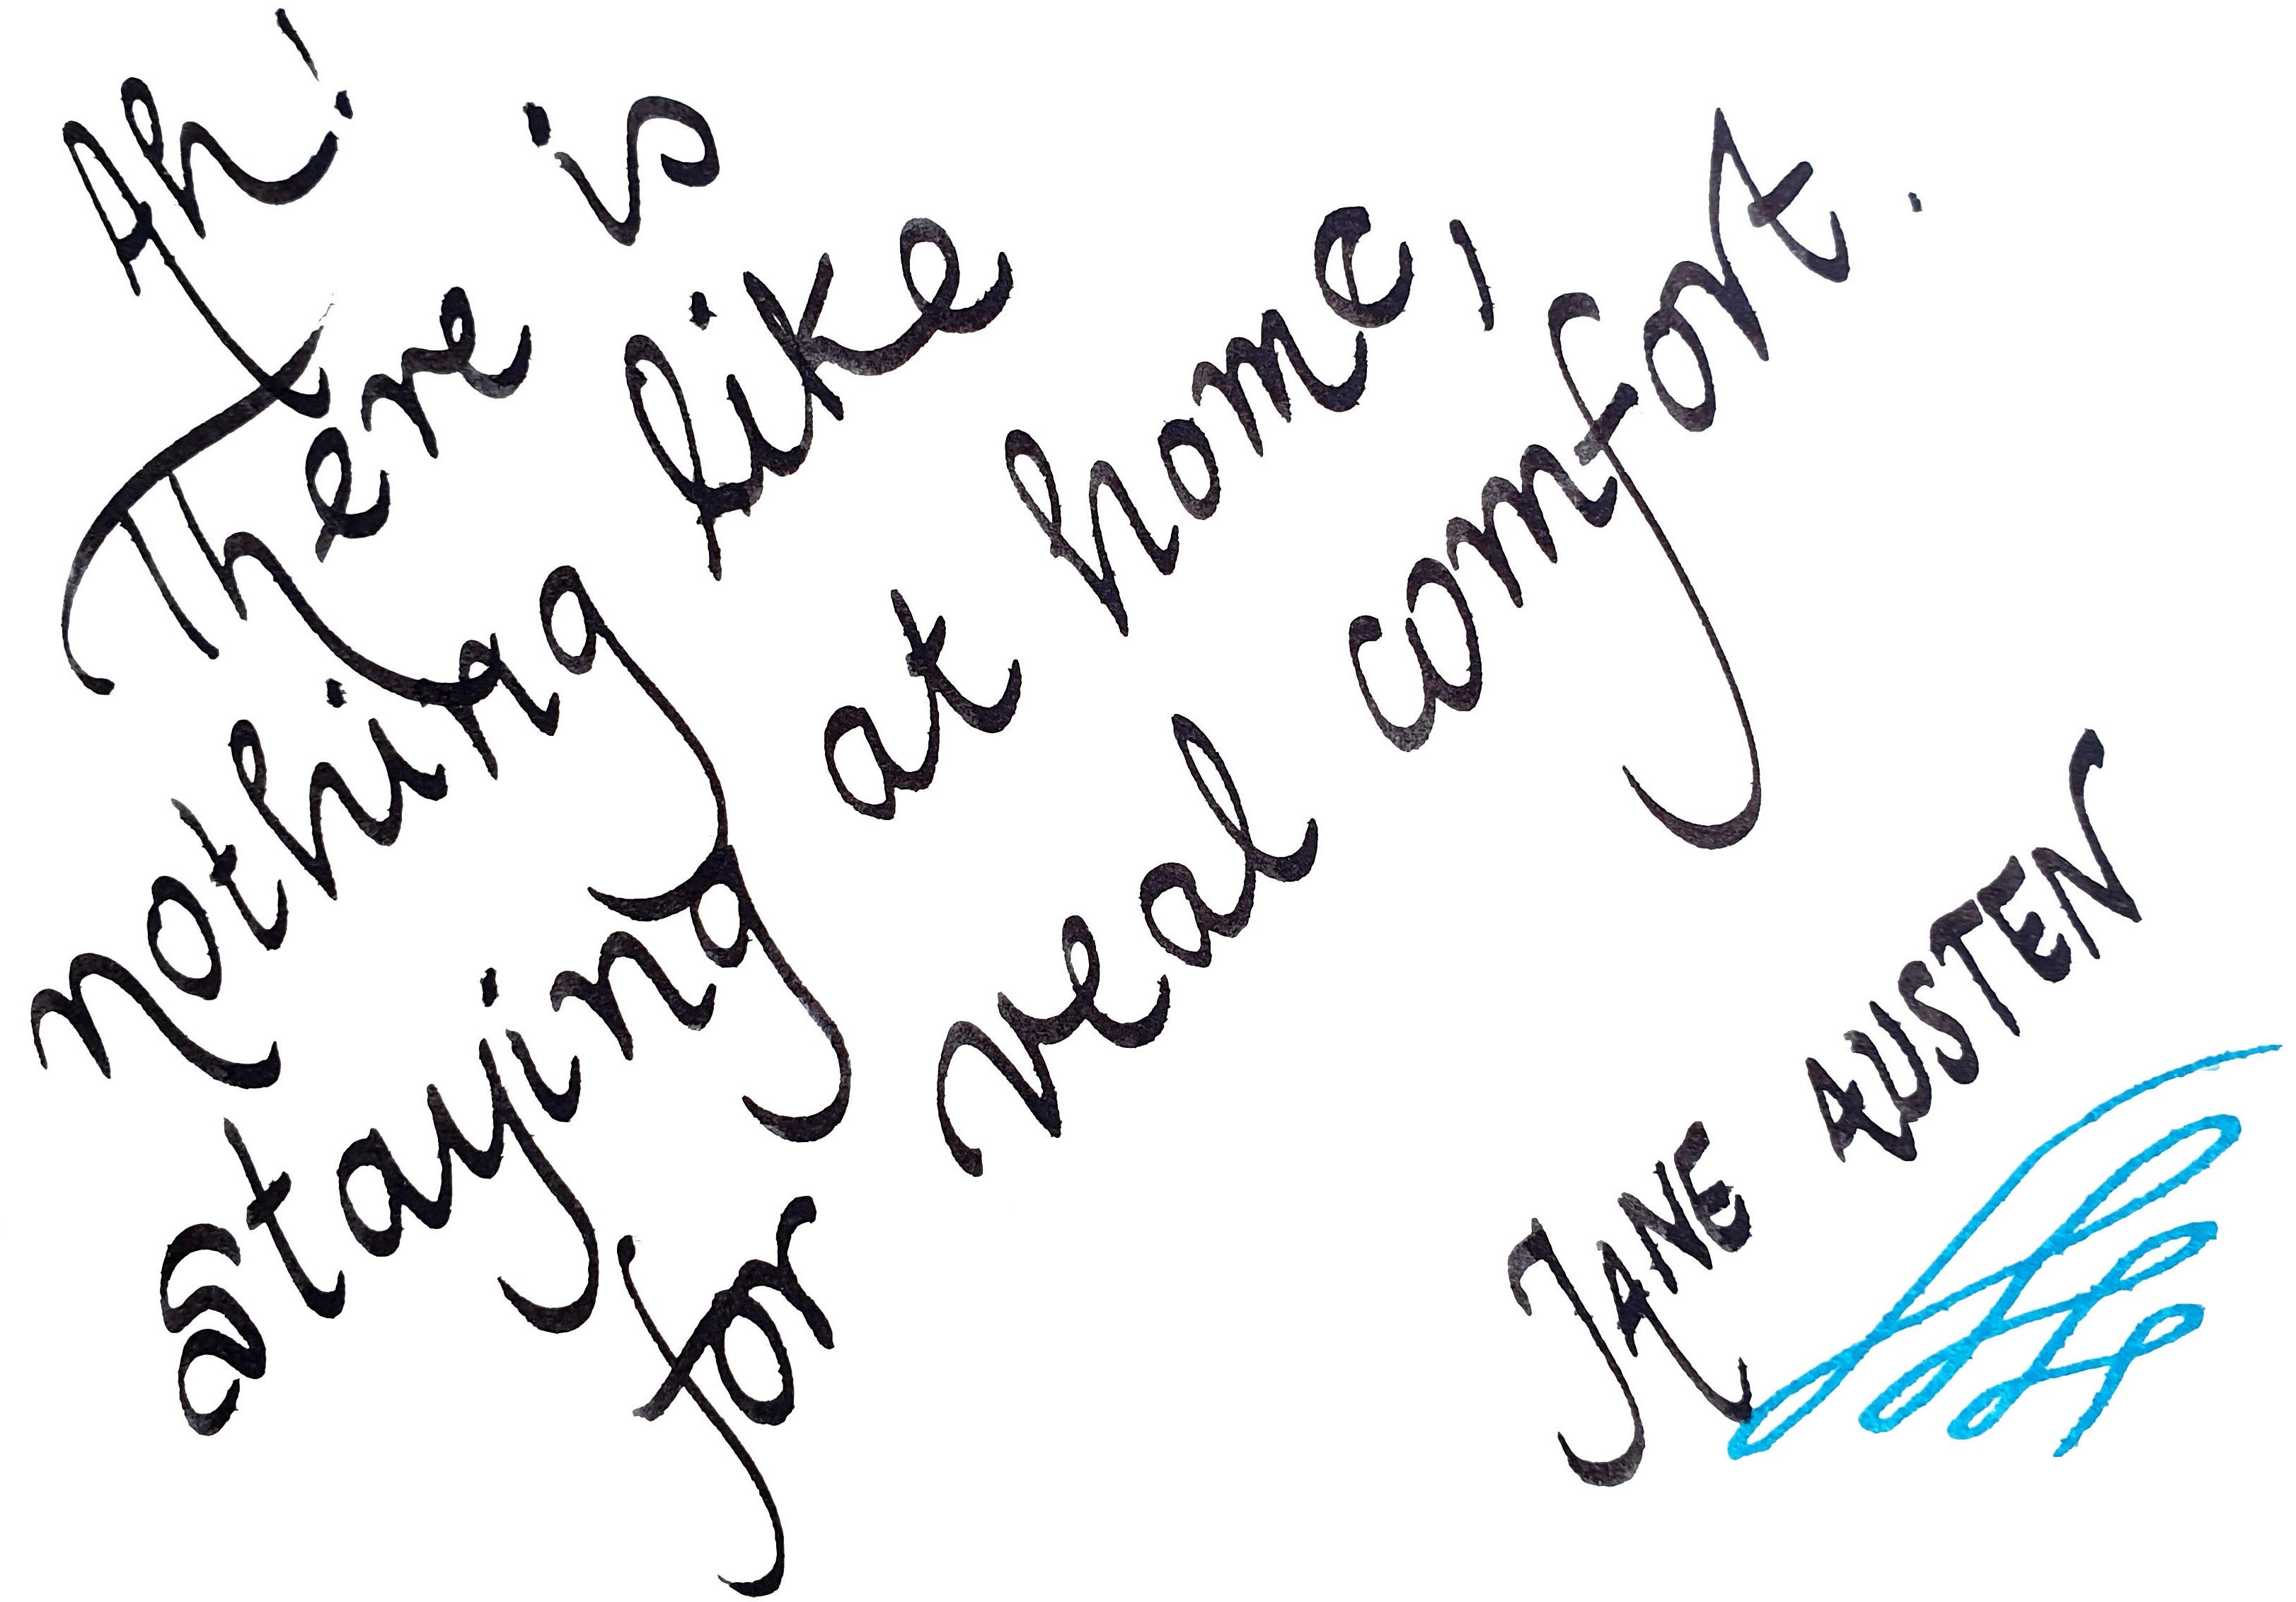 Ah!
There is
nothing like
staying at home,
for real comfort.
JANE AUSTEN